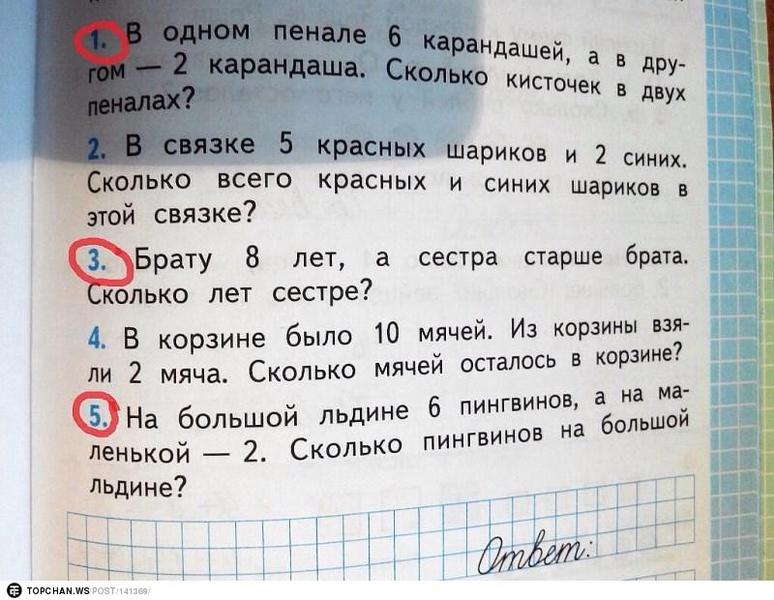 1. В одном пенале 6 карандашей, а в дру-
гом — 2 карандаша. Сколько кисточек в двух
пеналах?
2. В связке 5 красных шариков и 2 синих.
Сколько всего красных и синих шариков в
этой связке?
3. Брату 8 лет, а сестра старше брата.
Сколько лет сестре?
4. В корзине было 10 мячей. Из корзины взя-
ли 2 мяча. Сколько мячей осталось в корзине?
5. На большой льдине 6 пингвинов, а на ма-
ленькой — 2. Сколько пингвинов на большой
льдине?
Ответ:
TOPCHAN.WS POST/141369/